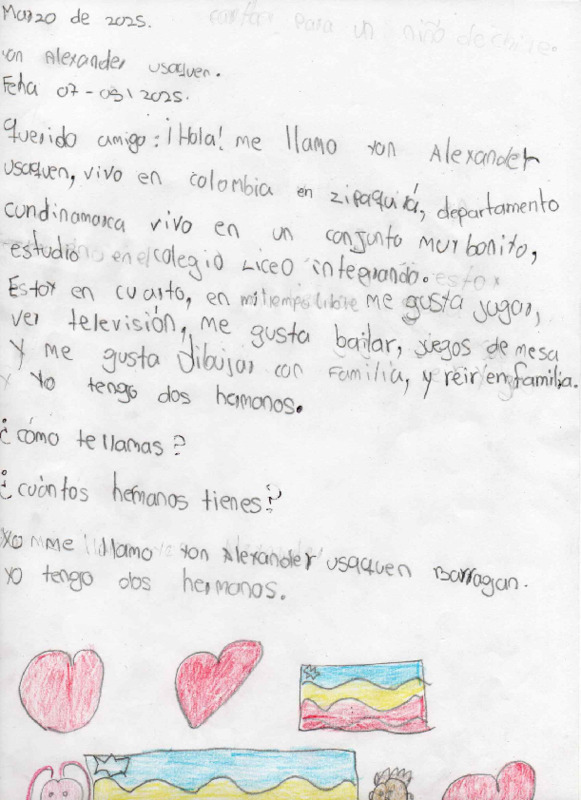 Marzo de 2025. carta para un niño de chile.
yon Alexander usaquen.
Feha 07-03\2025.
querido amigo: ¡Hola! me llamo yon Alexander
usaquen, vivo en colombia en zipaquirá, departamento
cundinamarca vivo en un conjunto muy bonito,
estudio en el colegio Liceo integrando.
Estoy en cuarto, en mi tiempo libre me gusta jugar,
ver televisión, me gusta bailar, juegos de mesa
y me gusta dibujar con familia, y reir en familia.
y yo tengo dos hermanos.
¿cómo te llamas?
¿cuántos hermanos tienes?
yo me llamo yon Alexander usaquen Barragan.
yo tengo dos hermanos.